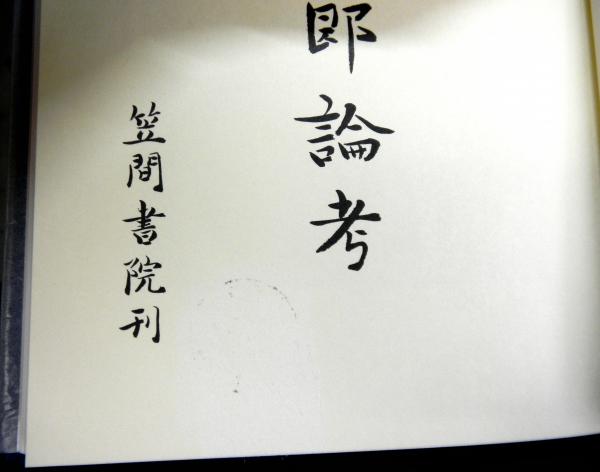 郎論考
笠間書院刊